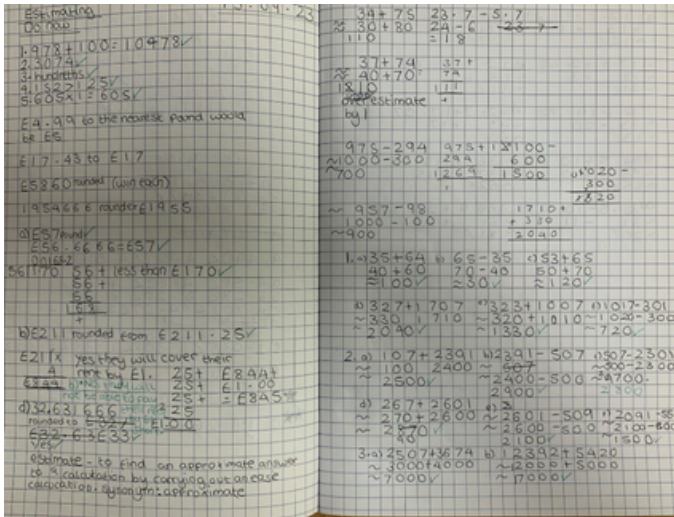 Estimating
Do now
1. 978 + 100 = 10478
2. 3074
3. hundredths
4. 152 7125
5. 605 x 1 = 605
£4.99 to the nearest pound would
be £5
£17.43 to £17
£5860 rounded (win each)
1954666 rounded £1955
a) £57 round
£56.6666 = £57
56 + less than £170
56 +
56
168
b) £211 rounded from £211.25
£211x yes they will cover their
4 rent by £1.
£844
25 + £844 +
25 + £1.00
25 + = £845
25
£1.00
d) 32.631666
rounded to
£32.63 £33
Yes
estimate - to find an approximate answer
to a calculation by carrying out an ease
calculation. synonym: approximate
34 + 75 23.7 - 5.7
≈ 30 + 80 24 - 6
110 = 18
37 + 74 37 +
≈ 40 + 70 74
111
overestimate
by 1
975 - 294 975 +
≈ 1000 - 300 294
≈ 700 1269
600
1500
1020 -
300
957 - 98 1710 +
1000 - 100 + 330
≈ 900 2040
1. a) 35 + 64 b) 65 - 35 c) 53 + 65
40 + 60 70 - 40 50 + 70
≈ 100 ≈ 30 ≈ 120
d) 327 + 1707 e) 323 + 1007 f) 1017 - 301
≈ 330 1710 ≈ 320 + 1010 ≈ 1020 - 300
≈ 2040 ≈ 1330 ≈ 720
2. a) 107 + 2391 b) 2391 - 507 c) 507 - 2301
≈ 100 2400 ≈ 607 ≈ 500 - 2300
2500 ≈ 2400 - 500
2900
d) 267 + 2601 e) 2601 - 509 f) 2091 -
≈ 270 + 2600 ≈ 2600 - 500 ≈ 2100 -
2100 ≈ 1500
3. a) 2507 + 3674 b) 12392 + 5420
≈ 3000 + 4000 ≈ 12000 + 5000
≈ 7000 ≈ 17000